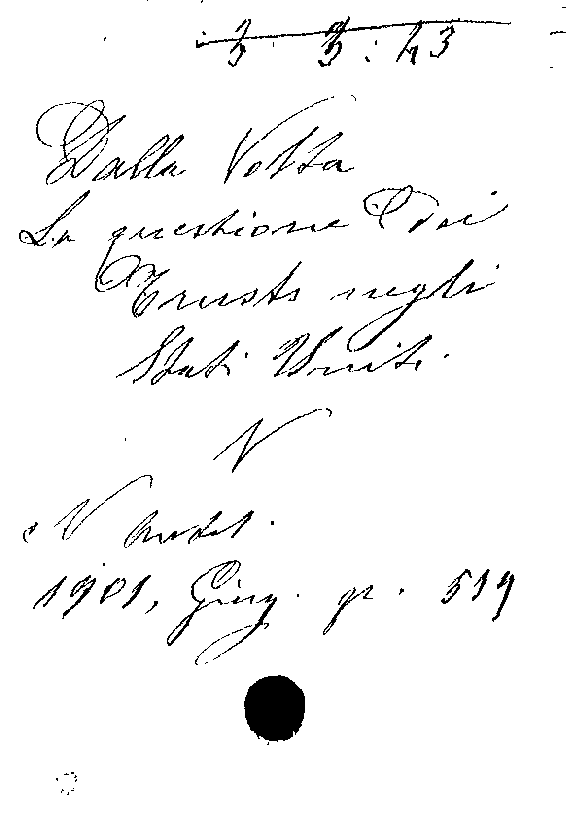 3 3:43
Dalla Votta
La questione dei
Trusts negli
Stati Uniti.
V
N Antol.
1901, Giug. p. 519